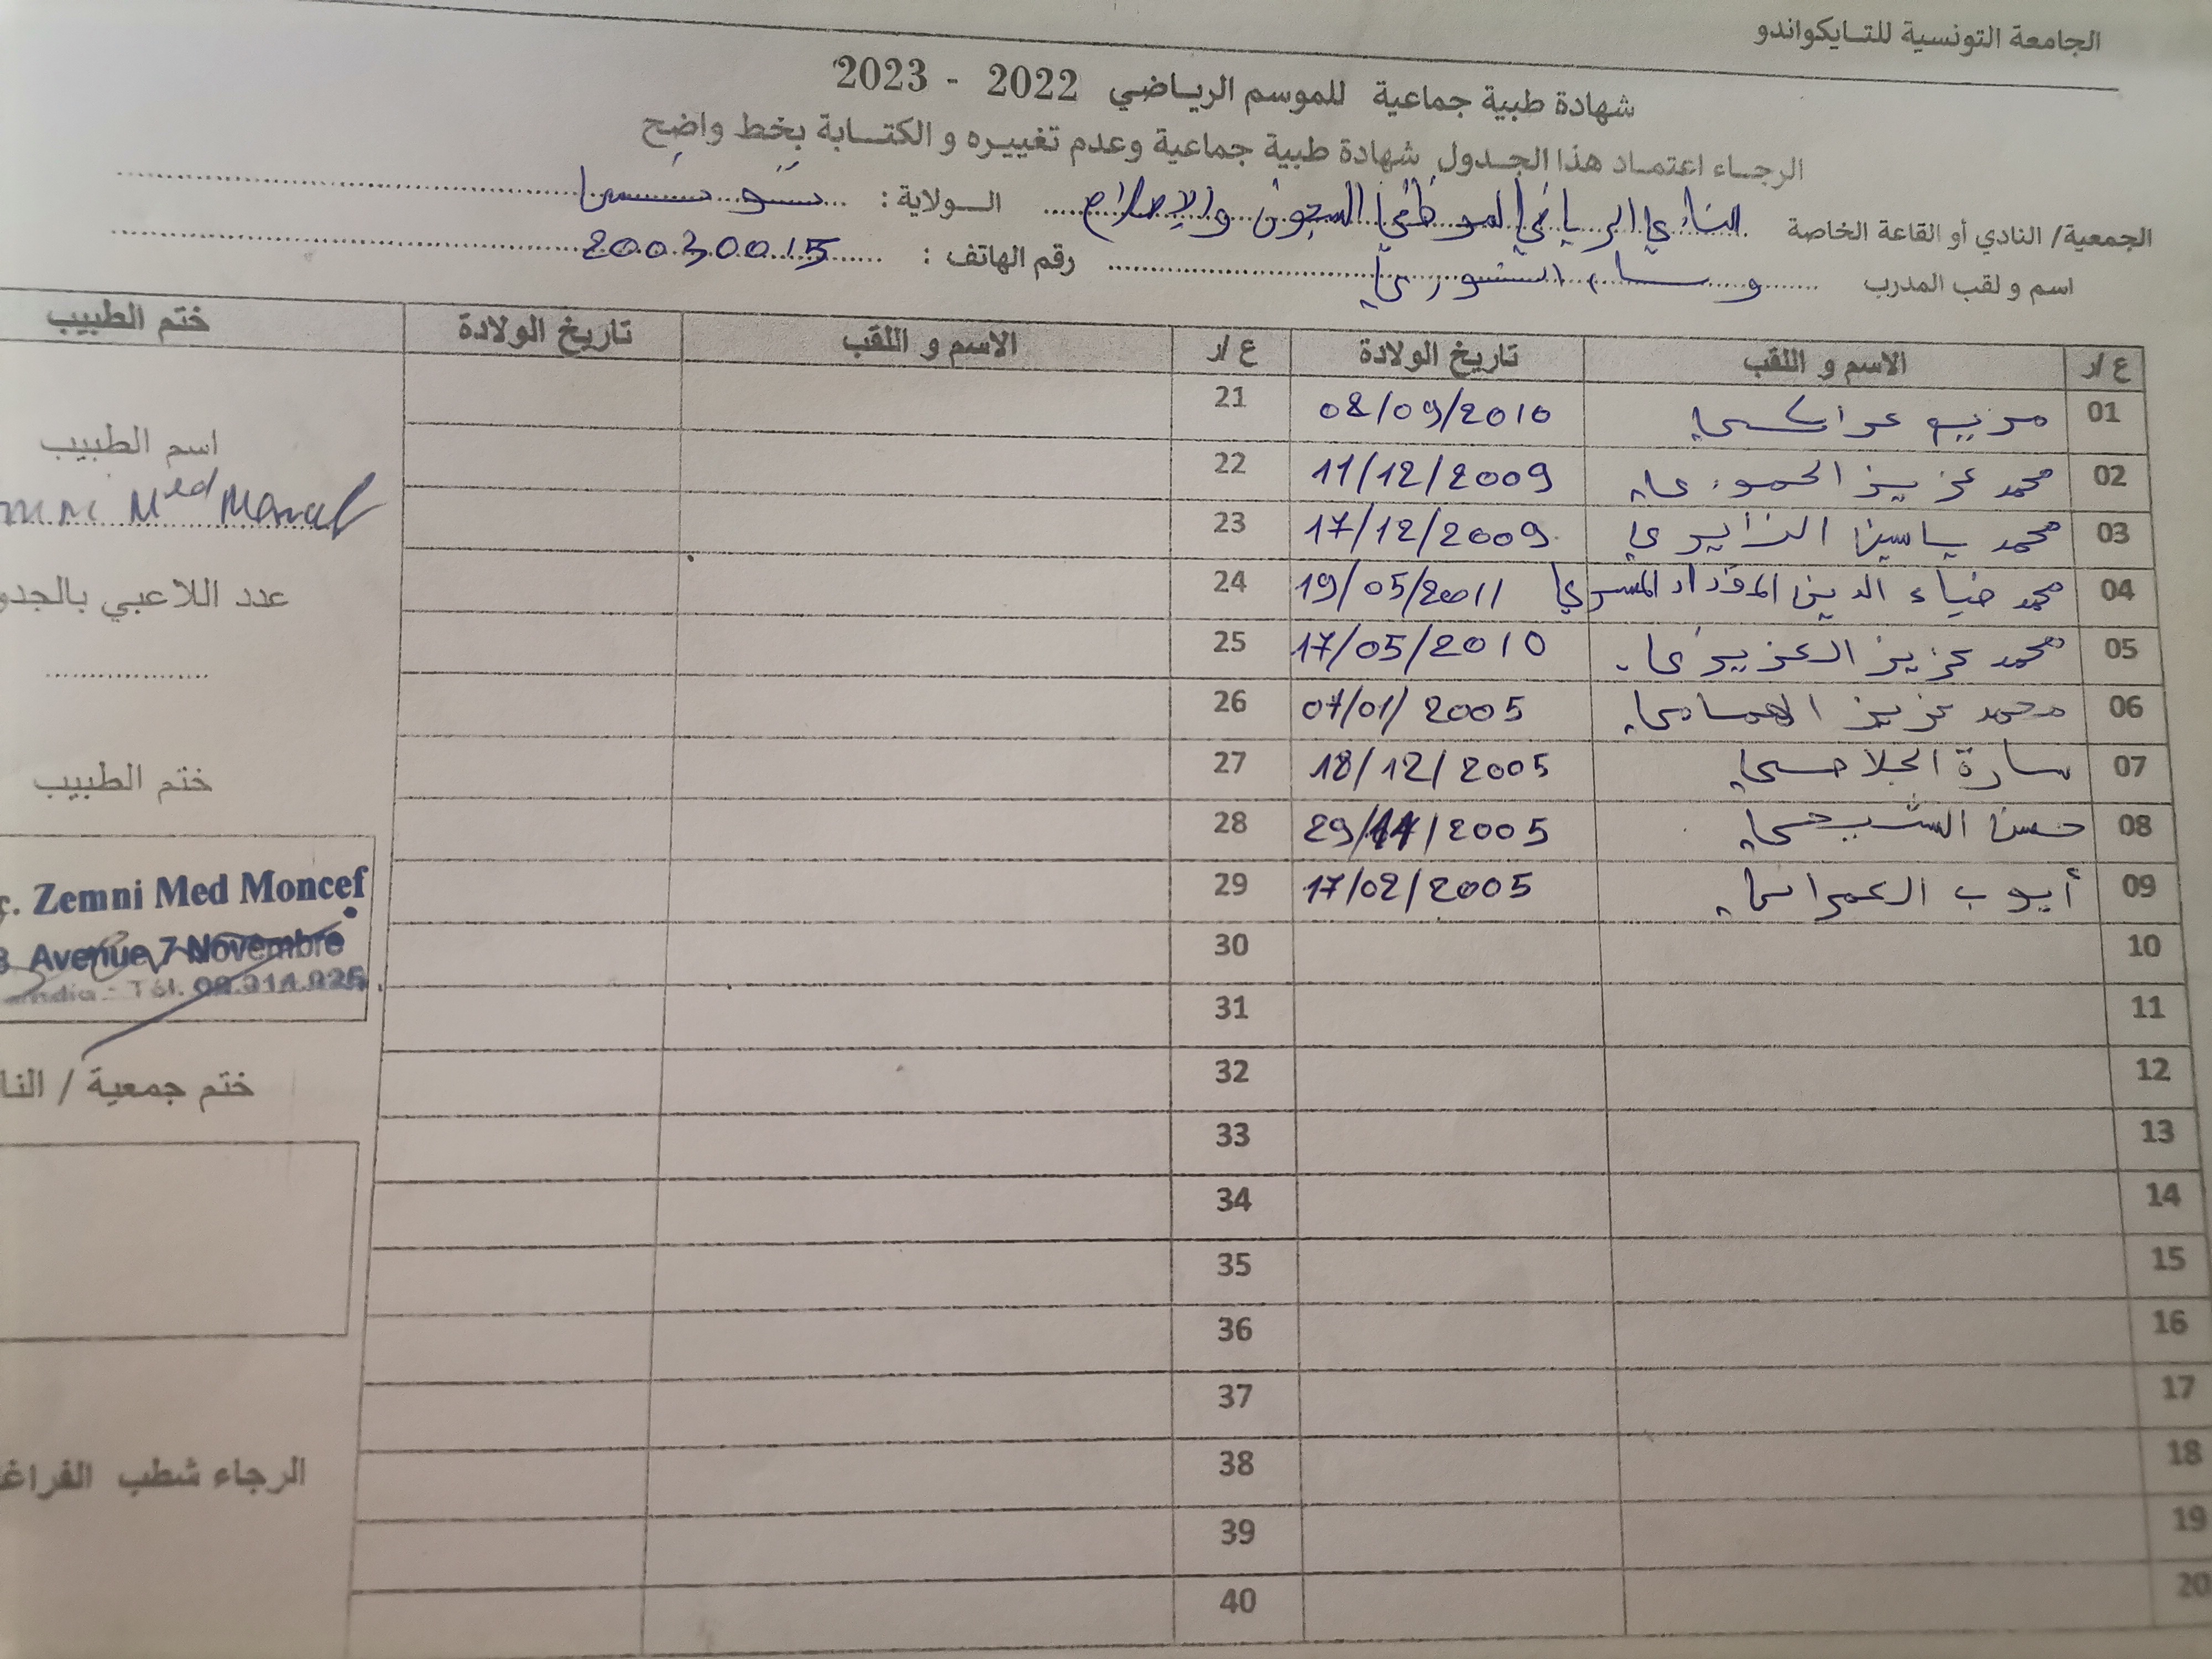 الجامعة التونسية للتايكواندو
شهادة طبية جماعية للموسم الرياضي 2022 - 2023
الرجاء اعتماد هذا الجدول شهادة طبية جماعية وعدم تغييره و الكتابة بخط واضح
الجمعية/ النادي أو القاعة الخاصة النادي الرياضي لموظفي السجون والإصلاح الولاية : تونس
اسم و لقب المدرب وسام رقم الهاتف : 20030015
ع/ر الاسم و اللقب تاريخ الولادة ع/ر الاسم و اللقب تاريخ الولادة ختم الطبيب
01 مريم عراكي 08/09/2010 21
02 محمد عزيز 11/12/2009 22
03 محمد ياسين الزايري 17/12/2009 23
04 محمد ضياء الدين المقداد 19/05/2011 24
05 محمد عزيز العزيزي 17/05/2010 25
06 محمد عزيز الهمامي 07/01/2005 26
07 سارة الجلاصي 18/12/2005 27
08 حسن الشبحي 29/11/2005 28
09 أيوب العمراني 17/02/2005 29
10 30
11 31
12 32
13 33
14 34
15 35
16 36
17 37
18 38
19 39
20 40
اسم الطبيب
Med Moncef
عدد اللاعبي بالجدو
ختم الطبيب
Zemni Med Moncef
Avenue 7 Novembre
Tél.
ختم جمعية / النا
الرجاء شطب الفراغ